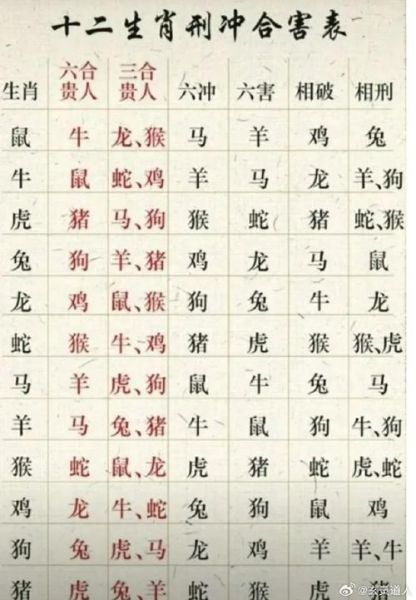 十二生肖刑冲合害表
生肖 六合贵人 三合贵人 六冲 六害 相破 相刑
鼠 牛 龙、猴 马 羊 鸡 兔
牛 鼠 蛇、鸡 羊 马 龙 羊、狗
虎 猪 马、狗 猴 蛇 猪 蛇、猴
兔 狗 羊、猪 鸡 龙 马 鼠
龙 鸡 鼠、猴 狗 兔 牛 龙
蛇 猴 牛、鸡 猪 虎 猴 猴、虎
马 羊 虎、狗 鼠 牛 兔 马
羊 马 兔、猪 牛 鼠 狗 牛、狗
猴 蛇 鼠、龙 虎 猪 蛇 虎、蛇
鸡 龙 牛、蛇 兔 狗 鼠 鸡
狗 兔 虎、马 龙 鸡 羊 羊、牛
猪 虎 兔、羊 蛇 猴 虎 猪
@玄灵道人